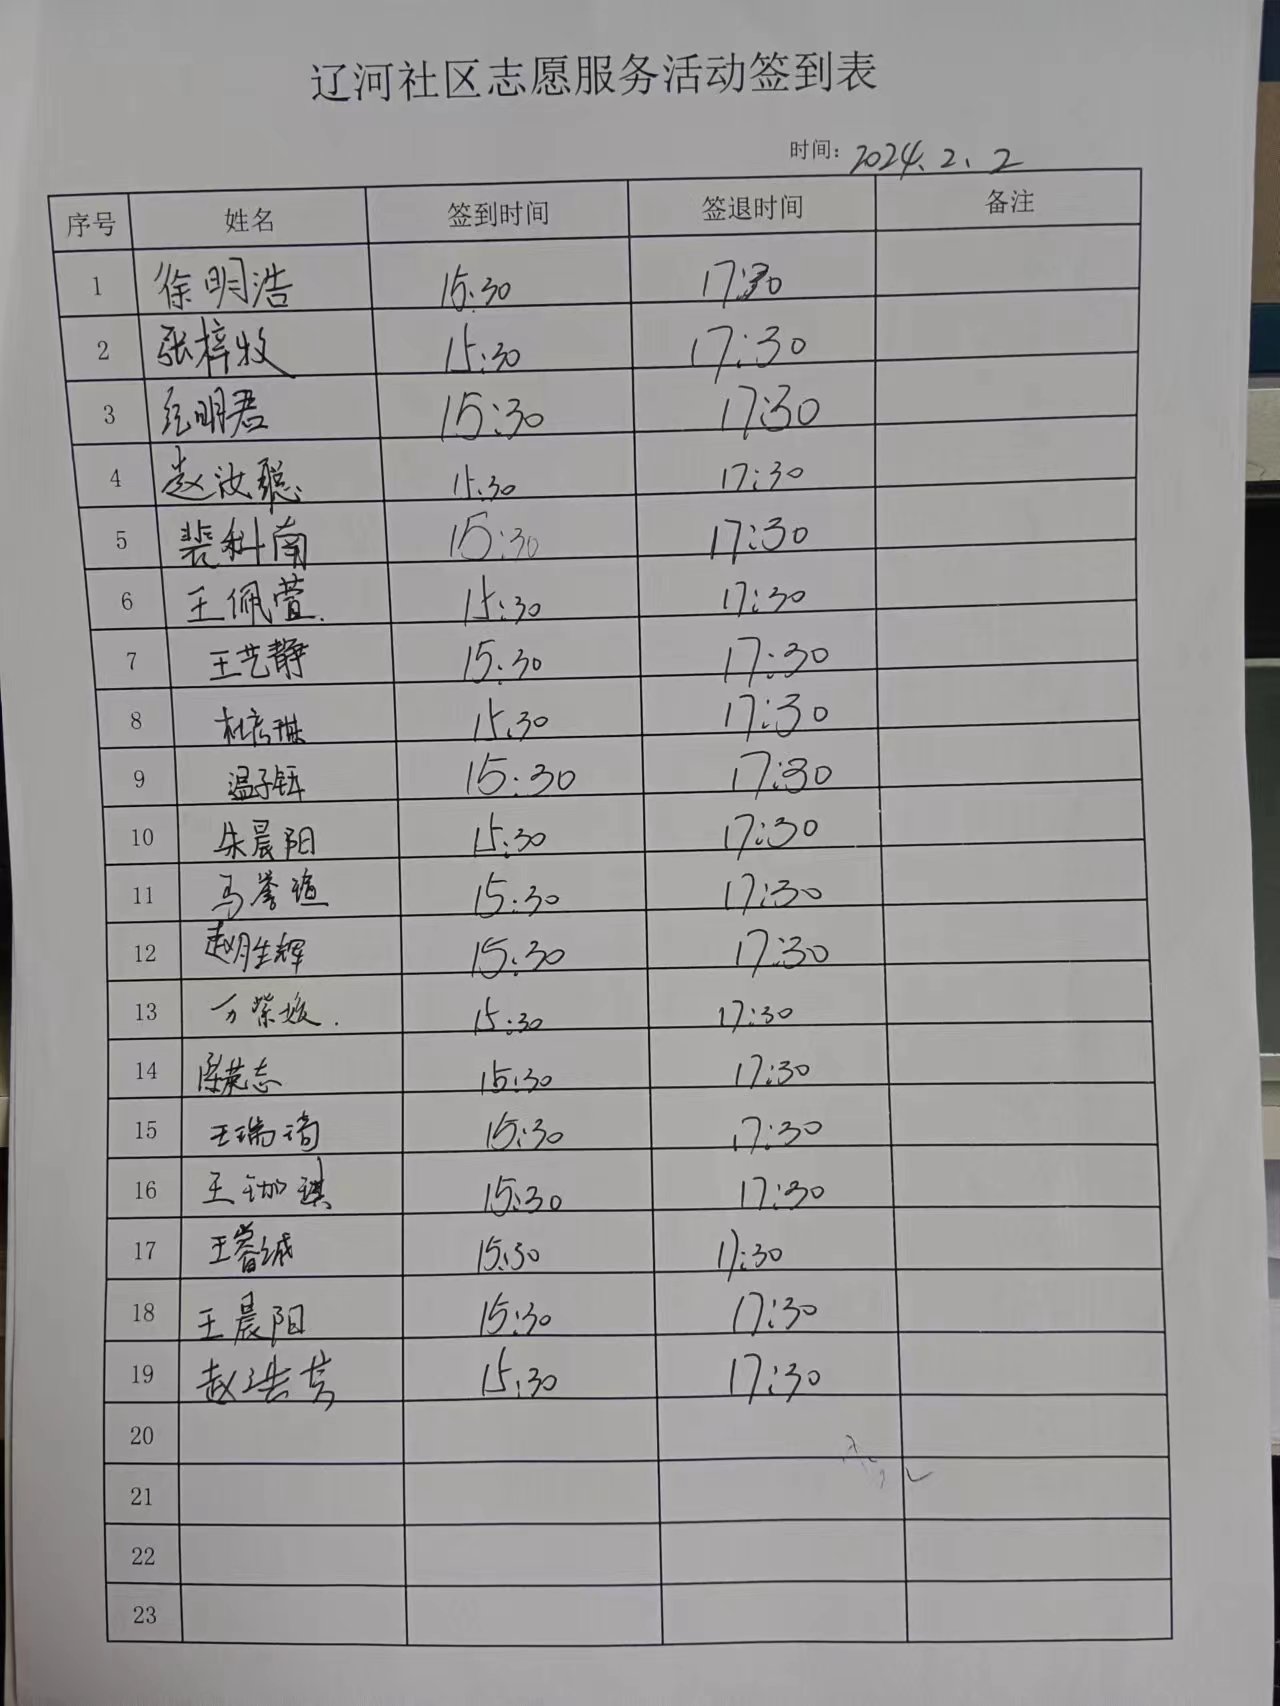 辽河社区志愿服务活动签到表
时间: 2024.2.2
序号 姓名 签到时间 签退时间 备注
1 徐明浩 15:30 17:30
2 张梓牧 15:30 17:30
3 明君 15:30 17:30
4 赵汝聪 15:30 17:30
5 裴科南 15:30 17:30
6 王佩萱 15:30 17:30
7 王艺静 15:30 17:30
8 杜 琳 15:30 17:30
9 温子钰 15:30 17:30
10 朱晨阳 15:30 17:30
11 马誉瑄 15:30 17:30
12 赵胜辉 15:30 17:30
13 万紫媛. 15:30 17:30
14 梁英志 15:30 17:30
15 王瑞琦 15:30 17:30
16 王珈琪 15:30 17:30
17 王睿诚 15:30 17:30
18 王晨阳 15:30 17:30
19 赵浩 15:30 17:30
20
21
22
23